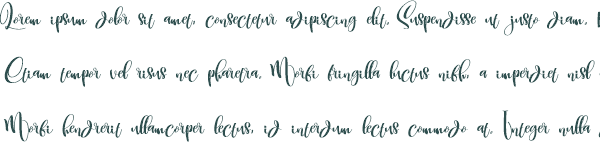 Lorem ipsum dolor sit amet, consectetur adipiscing elit. Suspendisse ut justo diam,
Etiam tempor vel risus nec pharetra. Morbi fringilla luctus nibh, a imperdiet nisl
Morbi hendrerit ullamcorper lectus, id interdum lectus commodo at. Integer nulla